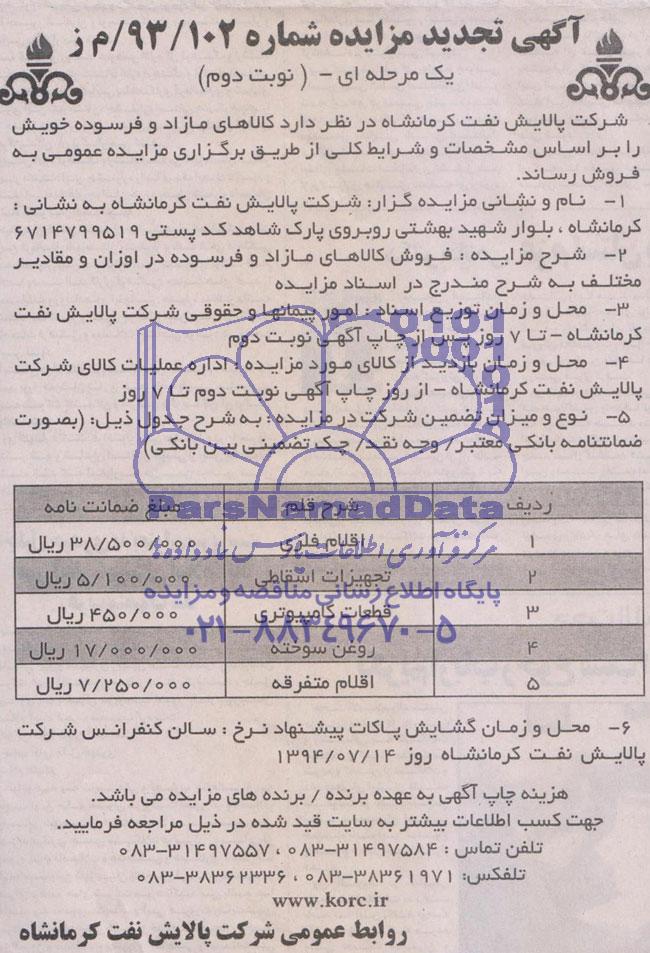 آگهی تجدید مزایده شماره ۹۳/۱۰۲/م ز
یک مرحله ای - ( نوبت دوم)
شرکت پالایش نفت کرمانشاه در نظر دارد کالاهای مازاد و فرسوده خویش
را بر اساس مشخصات و شرایط کلی از طریق برگزاری مزایده عمومی به
فروش رساند.
۱- نام و نشانی مزایده گزار: شرکت پالایش نفت کرمانشاه به نشانی :
کرمانشاه ، بلوار شهید بهشتی روبروی پارک شاهد کد پستی ۶۷۱۴۷۹۹۵۱۹
۲- شرح مزایده : فروش کالاهای مازاد و فرسوده در اوزان و مقادیر
مختلف به شرح مندرج در اسناد مزایده
۳- محل و زمان توزیع اسناد : امور پیمانها و حقوقی شرکت پالایش نفت
کرمانشاه - تا ۷ روز پس از چاپ آگهی نوبت دوم
۴- محل و زمان بازدید از کالای مورد مزایده : اداره عملیات کالای شرکت
پالایش نفت کرمانشاه - از روز چاپ آگهی نوبت دوم تا ۷ روز
۵- نوع و میزان تضمین شرکت در مزایده : به شرح جدول ذیل: (بصورت
ضمانتنامه بانکی معتبر/ وجه نقد/ چک تضمینی بین بانکی)
ParsNamadData
ردیف شرح قلم مبلغ ضمانت نامه
۱ اقلام فلزی ۳۸/۵۰۰/۰۰۰ ریال
مرکز فرآوری اطلاعات پارس نماد داده ها
۲ تجهیزات اسقاطی ۵/۱۰۰/۰۰۰ ریال
پایگاه اطلاع رسانی مناقصه و مزایده
۳ قطعات کامپیوتری ۴۵۰/۰۰۰ ریال
۰۲۱-۸۸۳۴۹۶۷۰-۵
۴ روغن سوخته ۱۷/۰۰۰/۰۰۰ ریال
۵ اقلام متفرقه ۷/۲۵۰/۰۰۰ ریال
۶- محل و زمان گشایش پاکات پیشنهاد نرخ : سالن کنفرانس شرکت
پالایش نفت کرمانشاه روز ۱۳۹۴/۰۷/۱۴
هزینه چاپ آگهی به عهده برنده / برنده های مزایده می باشد.
جهت کسب اطلاعات بیشتر به سایت قید شده در ذیل مراجعه فرمایید.
تلفن تماس : ۰۸۳-۳۱۴۹۷۵۸۴ ، ۰۸۳-۳۱۴۹۷۵۵۷
تلفکس: ۰۸۳-۳۸۳۶۱۹۷۱ ، ۰۸۳-۳۸۳۶۲۳۳۶
www.korc.ir
روابط عمومی شرکت پالایش نفت کرمانشاه